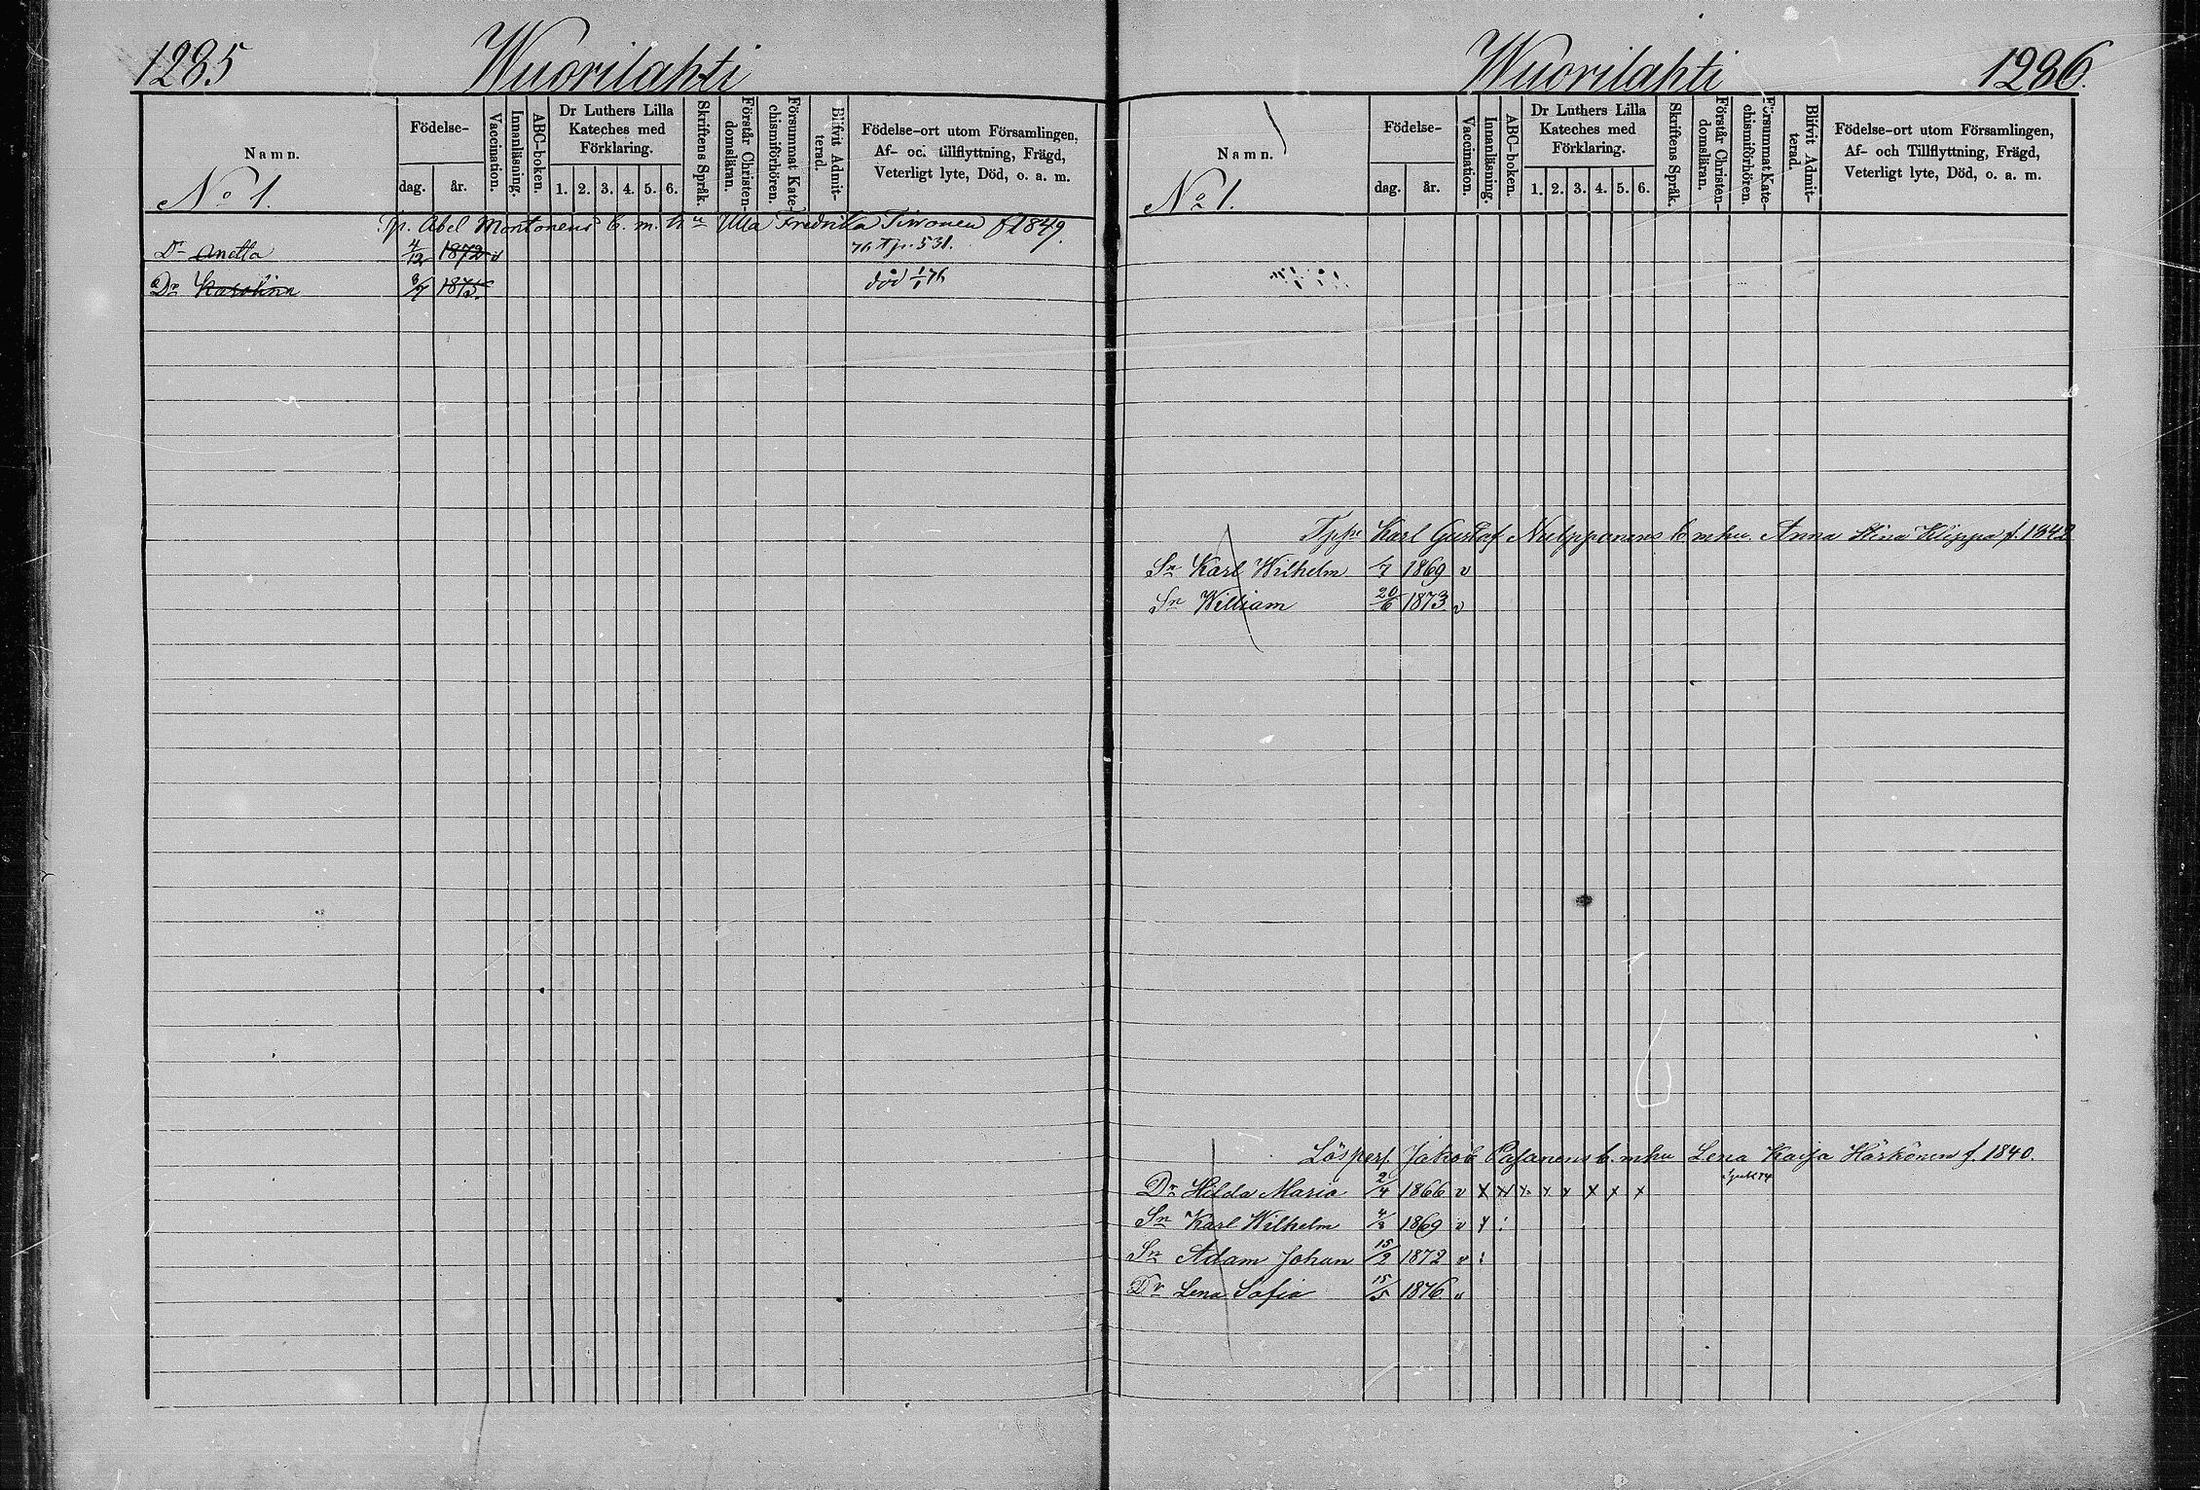 1285 Wuorilahti
Namn.
No 1.
Födelse-
dag. år.
Vaccination.
Innanläsning.
ABC-boken.
Dr Luthers Lilla
Kateches med
Förklaring.
1. 2. 3. 4. 5. 6.
Skriftens Språk.
Förstår Christen-
domsläran.
Försummat Kate-
chismiförhören.
Blifvit Admit-
terad.
Födelse-ort utom Församlingen,
Af- och tillflyttning, Frägd,
Veterligt lyte, Död, o. a. m.
Tp. Abel Montonens b. m. hu Ulla Fredrika Tirronen f 1849.
Dr Anetta 4/12 1872 v 76 Tp. 531.
Dr Karolina 3/7 1875. död 1/1 76
Wuorilahti 1286.
Namn.
No 1.
Födelse-
dag. år.
Vaccination.
Innanläsning.
ABC-boken.
Dr Luthers Lilla
Kateches med
Förklaring.
1. 2. 3. 4. 5. 6.
Skriftens Språk.
Förstår Christen-
domsläran.
Försummat Kate-
chismiförhören.
Blifvit Admit-
terad.
Födelse-ort utom Församlingen,
Af- och Tillflyttning, Frägd,
Veterligt lyte, Död, o. a. m.
Karl Gustaf Nulpponens b mhu. Anna Stina Klippa f. 1842
Sn Karl Wilhelm 1869 v
Sn William 20/6 1873 v
Lösperf. Jakob Pasanens b. mhu Lena Kaisa Härkönen f. 1840.
Dr Hilda Maria 2/4 1866 v x x x x x x x x
Sn Karl Wilhelm 4/3 1869 v x :
Sn Adam Johan 15/2 1872 v :
Dr Lena Sofia 15/5 1876 v